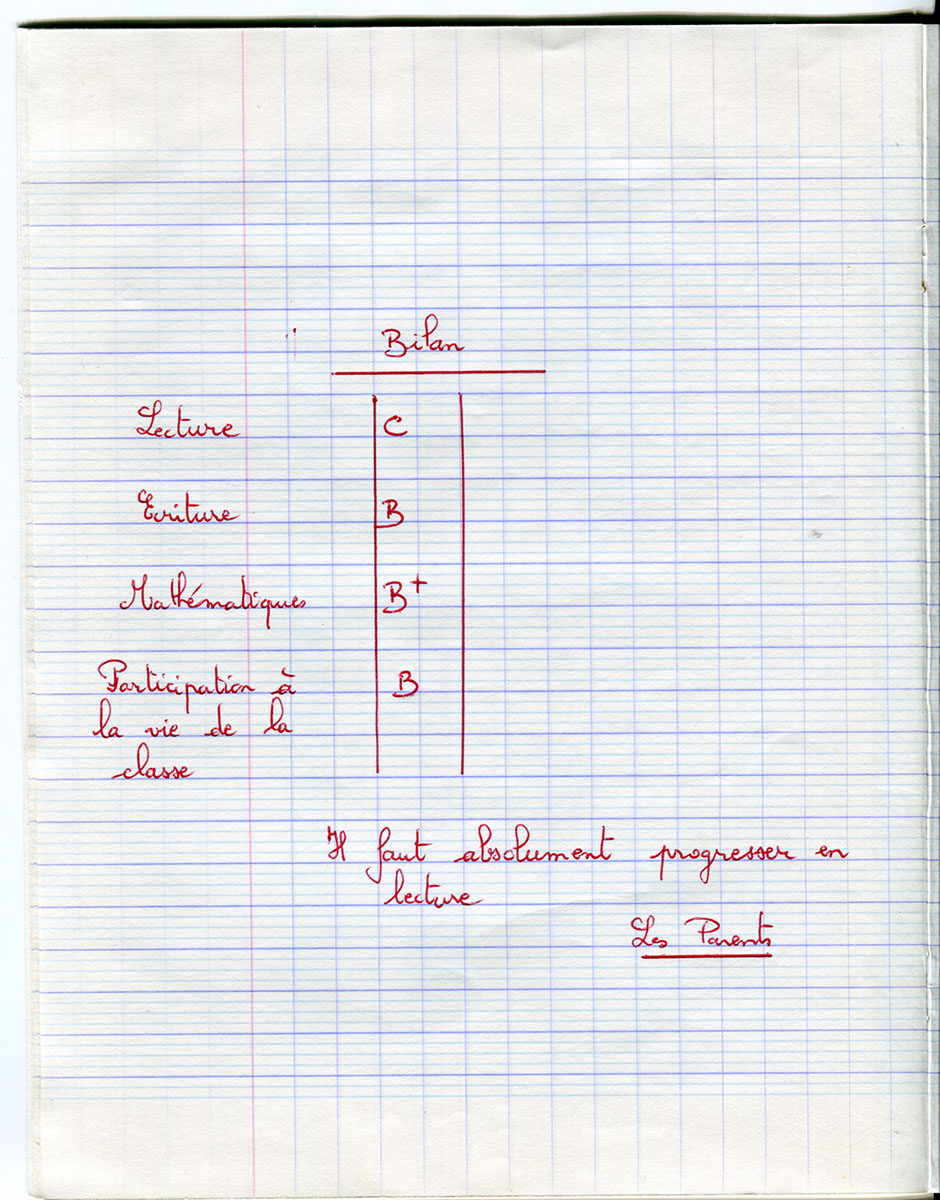 Bilan
Lecture C
Ecriture B
Mathématiques B+
Participation à B
la vie de la
classe
Il faut absolument progresser en
lecture
Les Parents